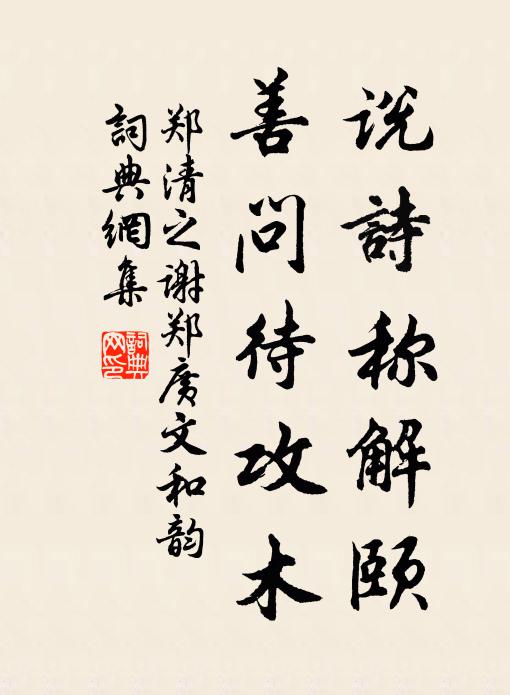 说詩称解颐
善问待攻木
郑清之谢郑广文和韵
词典網集
詞典网印